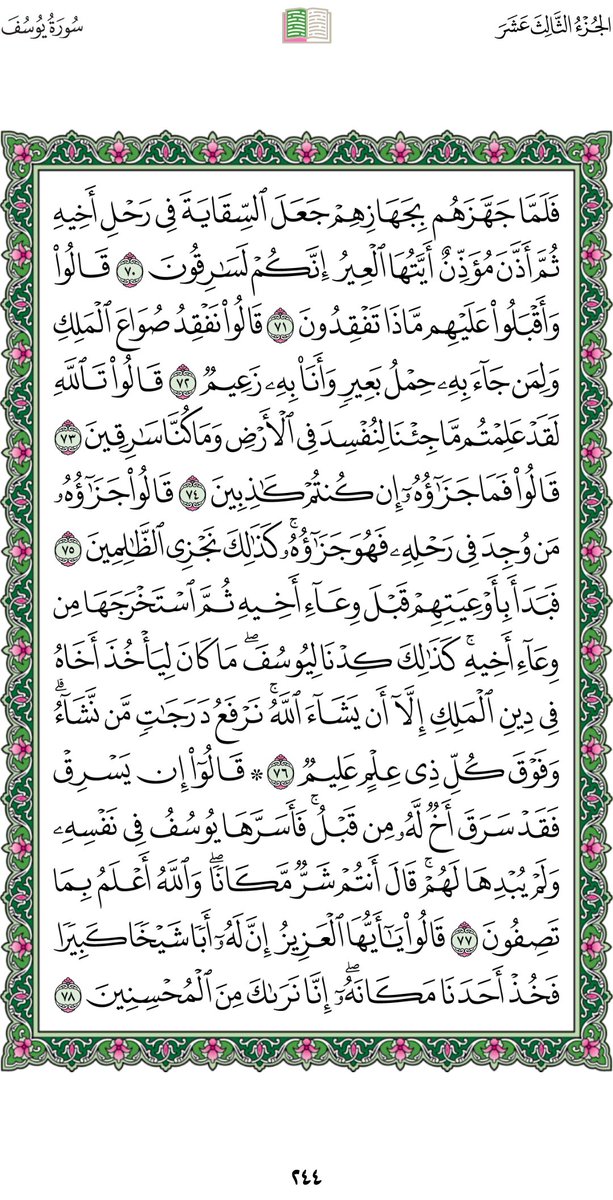 الجُزْءُ الثَّالِثَ عَشَرَ
سُورَةُ يُوسُفَ
فَلَمَّا جَهَّزَهُم بِجَهَازِهِمْ جَعَلَ ٱلسِّقَايَةَ فِى رَحْلِ أَخِيهِ
ثُمَّ أَذَّنَ مُؤَذِّنٌ أَيَّتُهَا ٱلْعِيرُ إِنَّكُمْ لَسَٰرِقُونَ ٧٠ قَالُوا۟
وَأَقْبَلُوا۟ عَلَيْهِم مَّاذَا تَفْقِدُونَ ٧١ قَالُوا۟ نَفْقِدُ صُوَاعَ ٱلْمَلِكِ
وَلِمَن جَآءَ بِهِۦ حِمْلُ بَعِيرٍ وَأَنَا۠ بِهِۦ زَعِيمٌ ٧٢ قَالُوا۟ تَٱللَّهِ
لَقَدْ عَلِمْتُم مَّا جِئْنَا لِنُفْسِدَ فِى ٱلْأَرْضِ وَمَا كُنَّا سَٰرِقِينَ ٧٣
قَالُوا۟ فَمَا جَزَٰٓؤُهُۥٓ إِن كُنتُمْ كَٰذِبِينَ ٧٤ قَالُوا۟ جَزَٰٓؤُهُۥ
مَن وُجِدَ فِى رَحْلِهِۦ فَهُوَ جَزَٰٓؤُهُۥۚ كَذَٰلِكَ نَجْزِى ٱلظَّٰلِمِينَ ٧٥
فَبَدَأَ بِأَوْعِيَتِهِمْ قَبْلَ وِعَآءِ أَخِيهِ ثُمَّ ٱسْتَخْرَجَهَا مِن
وِعَآءِ أَخِيهِۚ كَذَٰلِكَ كِدْنَا لِيُوسُفَۖ مَا كَانَ لِيَأْخُذَ أَخَاهُ
فِى دِينِ ٱلْمَلِكِ إِلَّآ أَن يَشَآءَ ٱللَّهُۚ نَرْفَعُ دَرَجَٰتٍ مَّن نَّشَآءُۗ
وَفَوْقَ كُلِّ ذِى عِلْمٍ عَلِيمٌ ٧٦ ۞ قَالُوٓا۟ إِن يَسْرِقْ
فَقَدْ سَرَقَ أَخٌ لَّهُۥ مِن قَبْلُۚ فَأَسَرَّهَا يُوسُفُ فِى نَفْسِهِۦ
وَلَمْ يُبْدِهَا لَهُمْۚ قَالَ أَنتُمْ شَرٌّ مَّكَانًاۖ وَٱللَّهُ أَعْلَمُ بِمَا
تَصِفُونَ ٧٧ قَالُوا۟ يَٰٓأَيُّهَا ٱلْعَزِيزُ إِنَّ لَهُۥٓ أَبًا شَيْخًا كَبِيرًا
فَخُذْ أَحَدَنَا مَكَانَهُۥٓۖ إِنَّا نَرَىٰكَ مِنَ ٱلْمُحْسِنِينَ ٧٨
٢٤٤